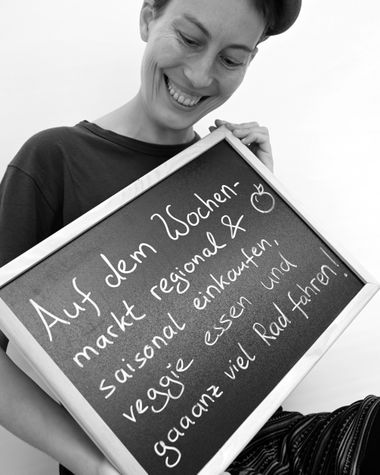 Auf dem Wochen-
markt regional &
saisonal einkaufen,
veggie essen und
gaaanz viel Rad fahren!!